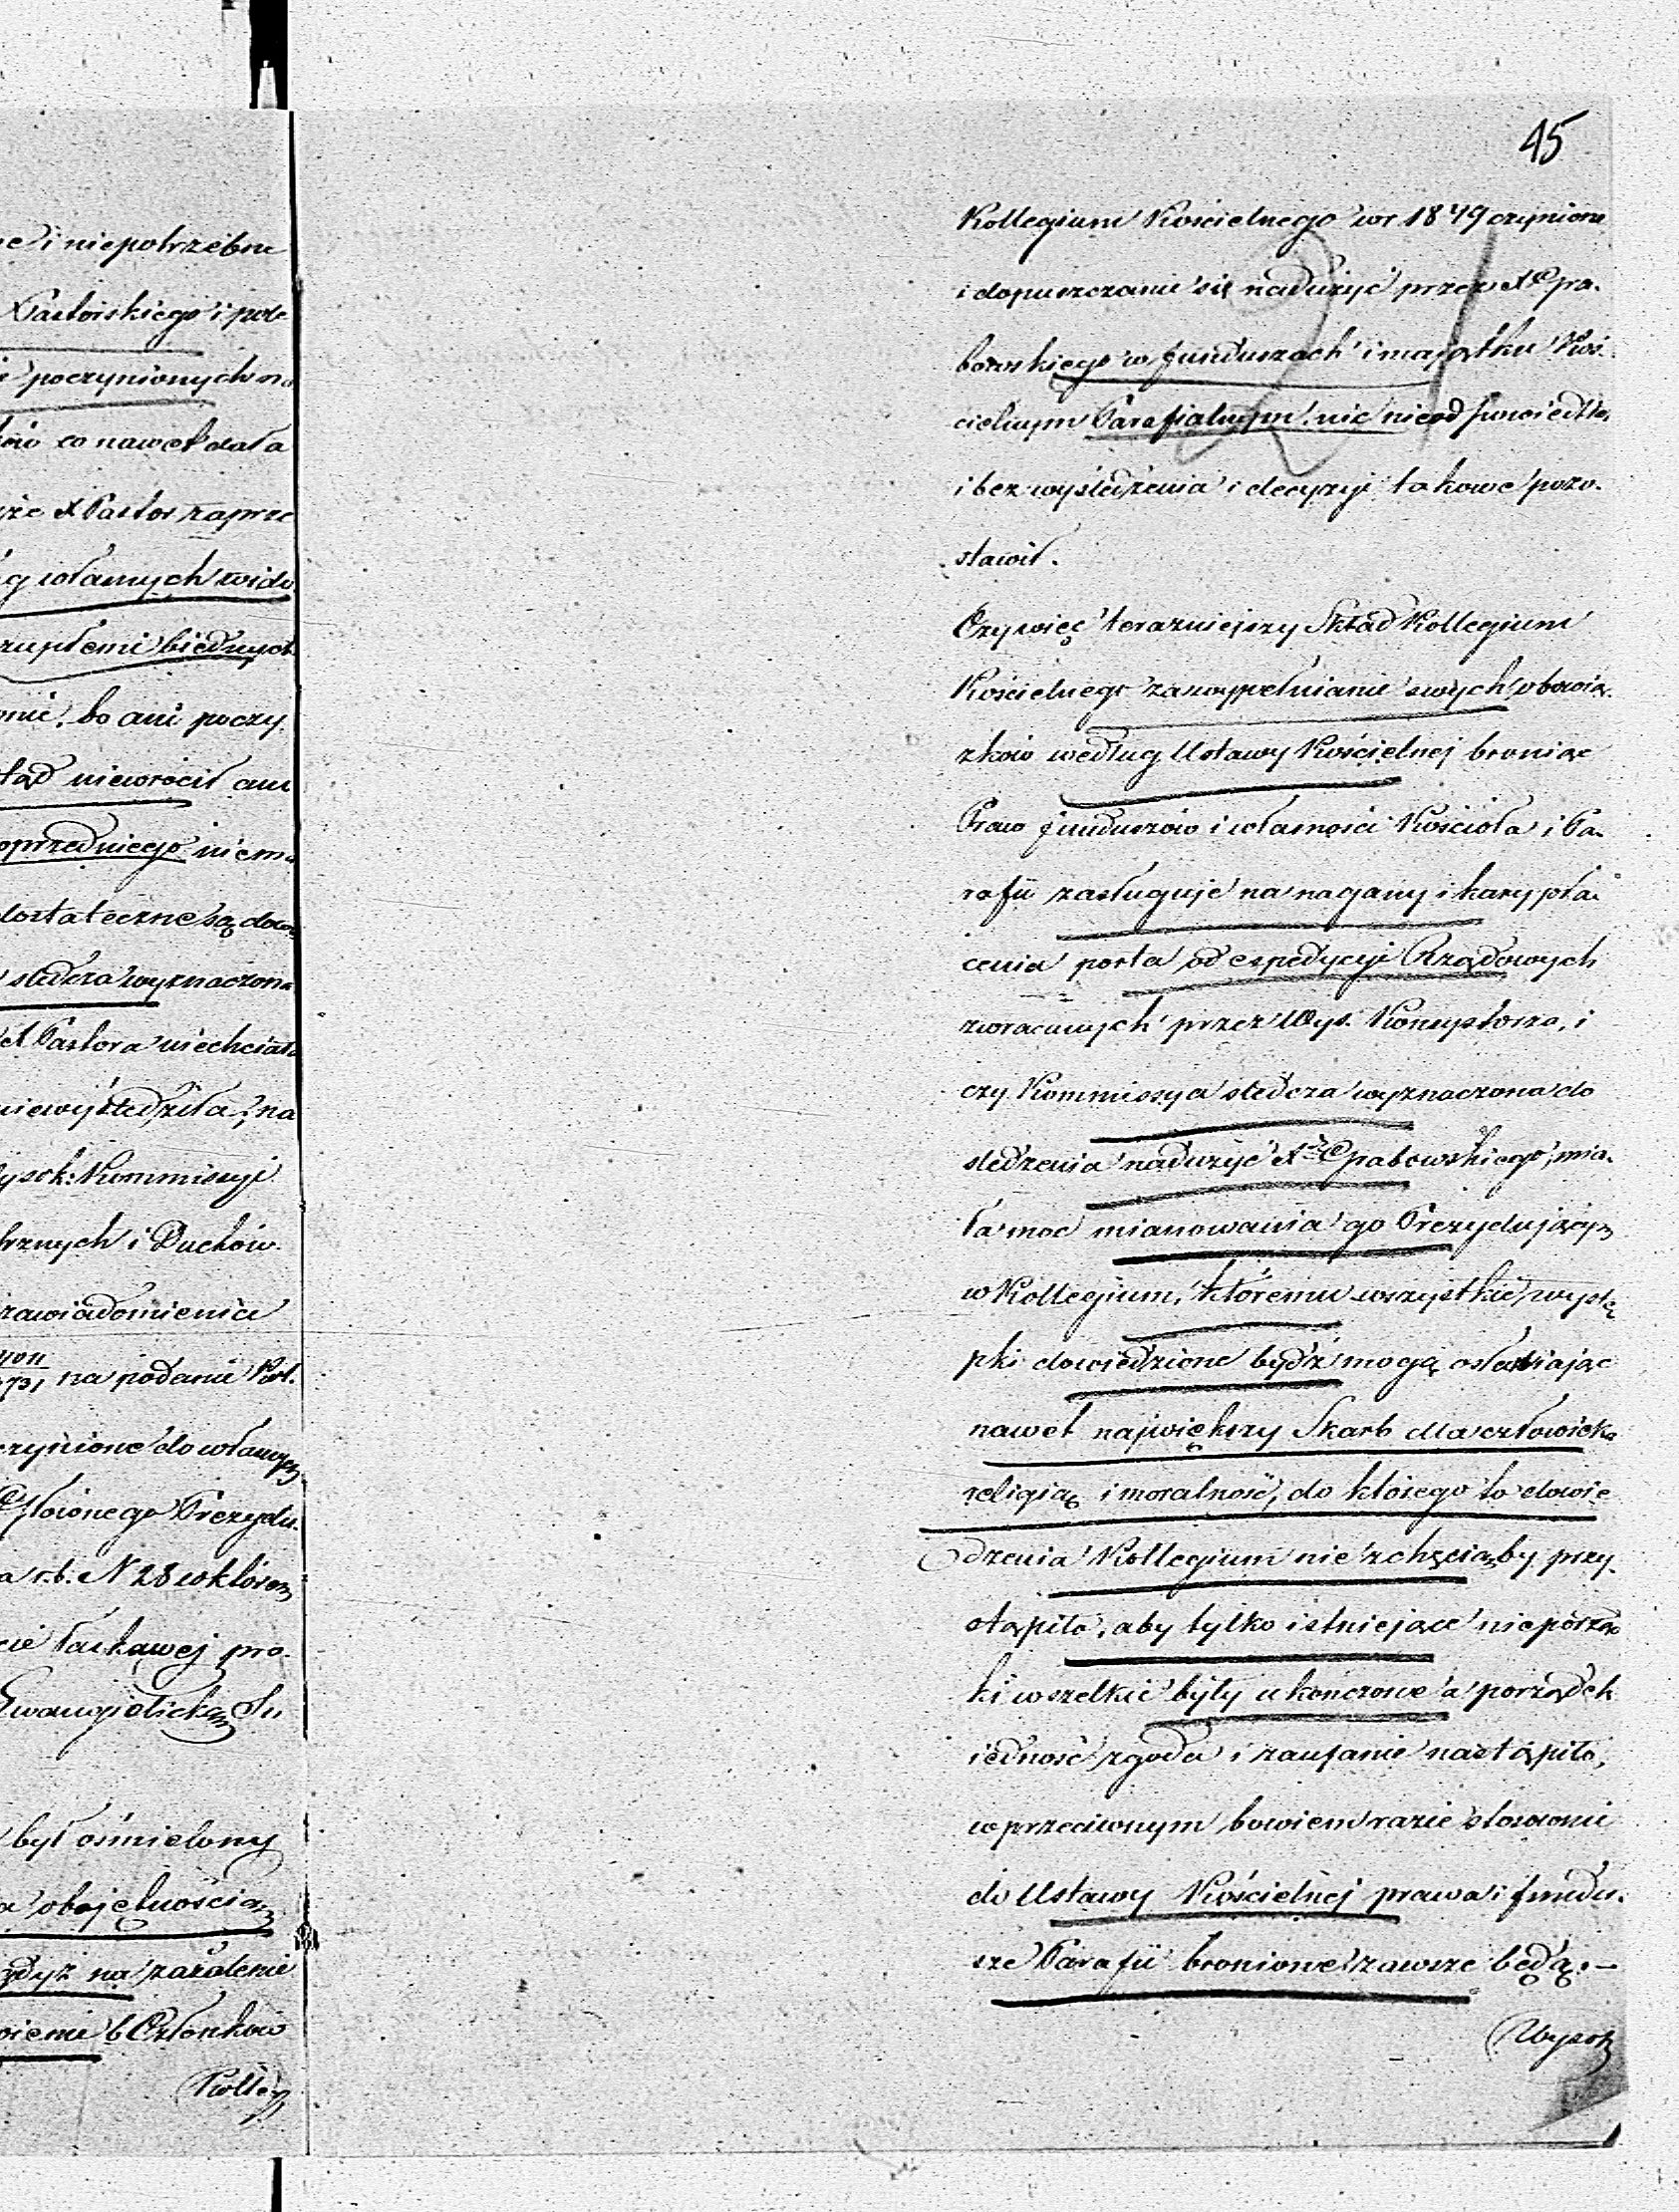 e i niepotrzebne
Pastorskiego i pole
poczynionych
co nawet dała
że X Pastor zaprze
własnych wido
zupłemi biednych
nie, bo ani poczy.
tąd niewrócił ani
oprzedniego niema
dostateczne są
śledcza wyznaczona
X Pastora niechciała
niewyśledziła, na
ysok: Kommissyi
trznych i Duchów.
zawiadomienie
731 na podanie
czynione do własnym
Prezydu.
a r.b. N 28 w którem
cie łaskawej pro.
Ewangielickam Stu
był ośmielony
a obojętnością
gdyż na zażalenie
6 Członków
Kolle
45
21
Kollegium Kościelnego w r 1849 czynione
i dopuszczanie się nadużyć przez Xa Gra.
bowskiego w funduszach i majątku Koś.
cielnym Parafialnym. nic nieodpowiedział
i bez wyśledzenia i decyzyi takowe pozo.
stawił.
Czy więc teraźniejszy Skład Kollegium
Kościelnego za wypełnianie swych obowią.
zków według Ustawy Kościelnej broniąc
Praw funduszów i własności Kościoła i Pa.
rafii zasługuje na nagany i kary płac
cenia porta od expedycyi Rządowych
zwracanych przez Wys. Konsystorza, i
czy Kommissya śledcza wyznaczona do
śledzenia nadużyć Xdza Grabowskiego, mia.
ła moc mianowania go Prezydującym
w Kollegium, któremu wszystkie wystę
pki dowiedzione bydź mogą osłabiając
nawet największy Skarb dla człowieka
religią i moralność, do którego to dowie
dzenia Kollegium nie z chęcią by przy.
stąpiło, aby tylko istniejące nieporząd
ki wszelkie były ukończone a porządek
iedność zgoda i zaufanie nastąpiło,
w przeciwnym bowiem razie stosownie
do Ustawy Kościelnej prawa i fundu.
sze Parafii bronione zawsze będą.—
Wysok